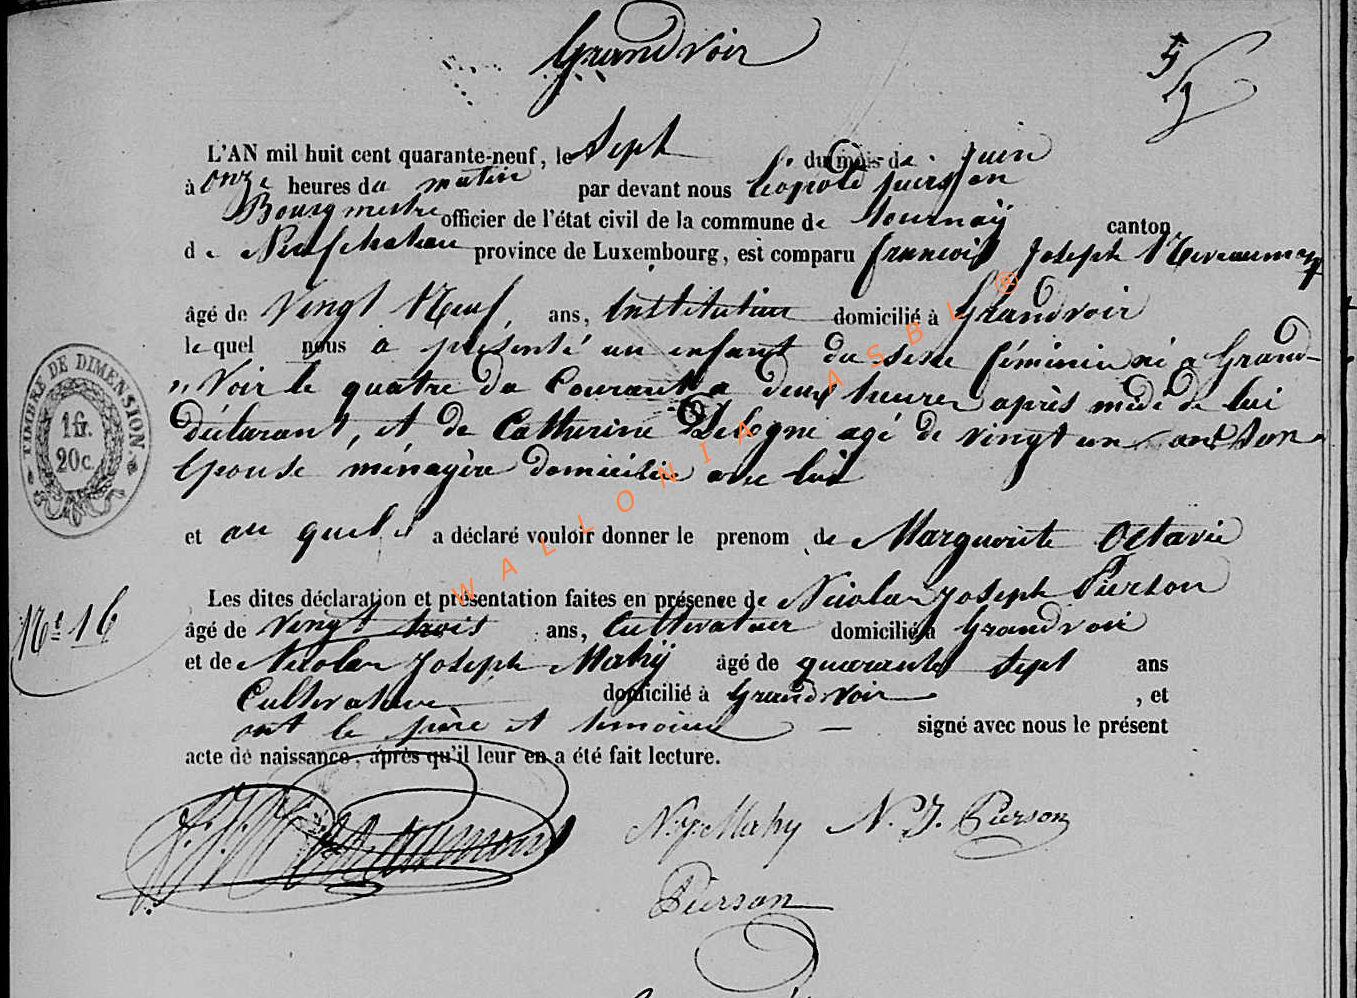 Grandvoir
L'AN mil huit cent quarante-neuf, le Sept du mois de Juin
à onze heures du matin par devant nous Léopold Pierson
Bourgmestre officier de l'état civil de la commune de Tournaÿ canton
de Neufchateau province de Luxembourg, est comparu francois Joseph
âgé de Vingt Neuf ans, Instituteur domicilié à Grandvoir
le quel nous a présenté un enfant du sexe féminin né a Grand-
"Voir le quatre du Courant a deux heures après midi de lui
déclarant, et de Catherine Delogne agé de vingt un ans son
Epouse ménagère domicilié avec lui
et au quel il a déclaré vouloir donner le prenom de Marguerite Octavie
Les dites déclaration et présentation faites en présence de Nicolas Joseph Pierson
âgé de Vingt trois ans, Cultivateur domicilié à Grandvoir
et de Nicolas Joseph Mahÿ âgé de quarante sept ans
Cultivateur domicilié à Grandvoir , et
ont le père et temoins signé avec nous le présent
acte de naissance, après qu'il leur en a été fait lecture.
N. J. Mahy N. J. Pierson
Pierson
N° 16
TIMBRE DE DIMENSION.
1 fr.
20 c.
WALLONIA ASBL ®